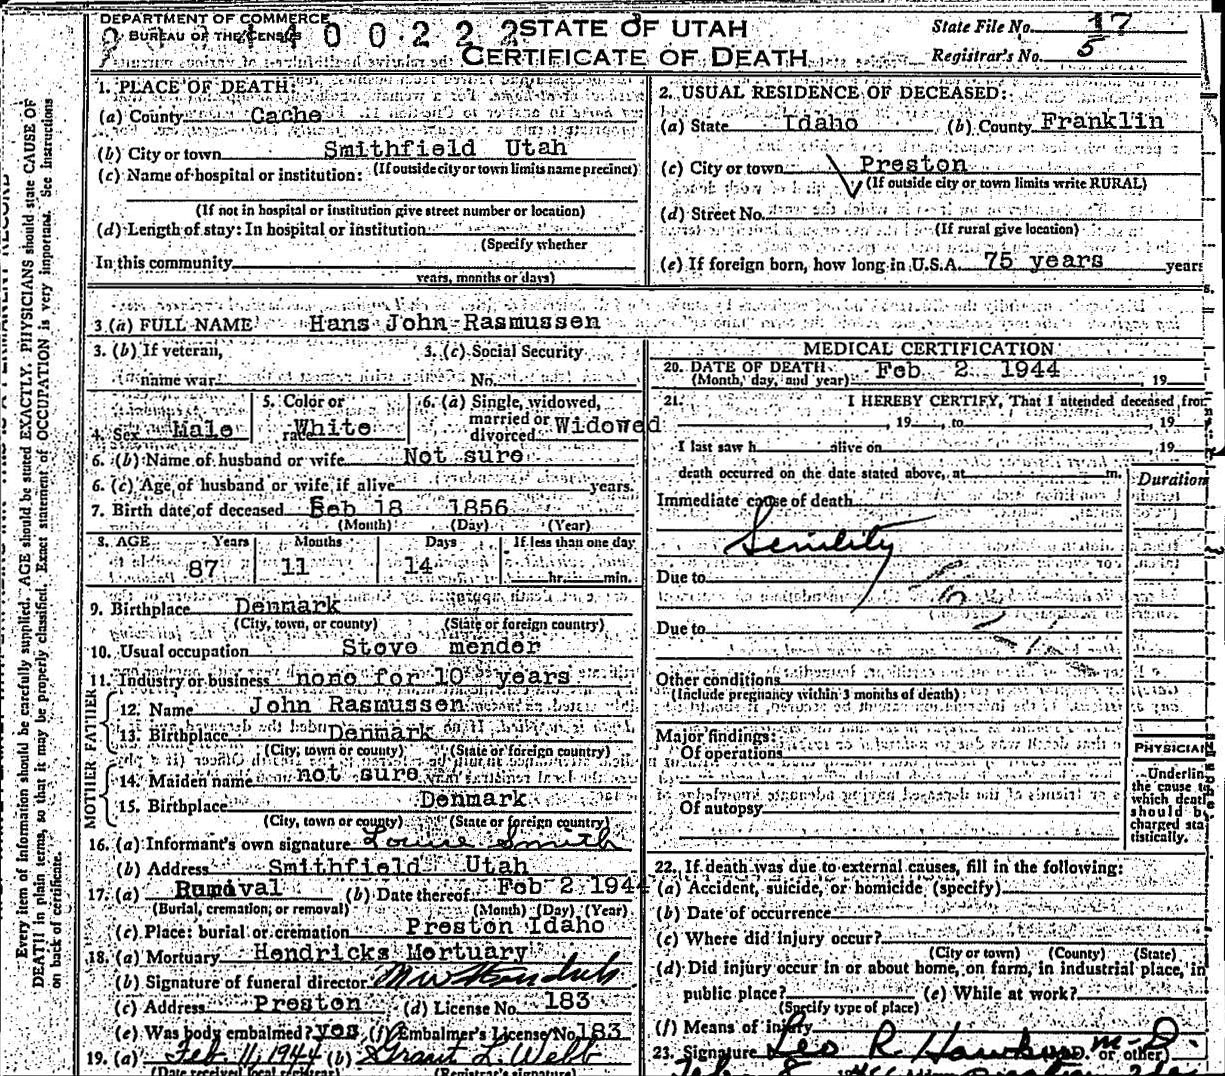 DEPARTMENT OF COMMERCE
BUREAU OF THE CENSUS
0 0 2 2 2
STATE OF UTAH
CERTIFICATE OF DEATH
State File No. 17
Registrar's No. 5
Every item of information should be carefully supplied. AGE should be stated EXACTLY. PHYSICIANS should state CAUSE OF
DEATH in plain terms, so that it may be properly classified. Exact statement of OCCUPATION is very important. See instructions
on back of certificate.
1. PLACE OF DEATH:
(a) County Cache
(b) City or town Smithfield Utah
(If outside city or town limits name precinct)
(c) Name of hospital or institution:
(If not in hospital or institution give street number or location)
(d) Length of stay: In hospital or institution
(Specify whether
In this community
years, months or days)
2. USUAL RESIDENCE OF DECEASED:
(a) State Idaho (b) County Franklin
(c) City or town Preston
(If outside city or town limits write RURAL)
(d) Street No.
(If rural give location)
(e) If foreign born, how long in U.S.A. 75 years years
3 (a) FULL NAME Hans John Rasmussen
3. (b) If veteran,
name war
3. (c) Social Security
No.
4. Sex Male
5. Color or
race White
6. (a) Single, widowed,
married or
divorced Widowed
6. (b) Name of husband or wife Not sure
6. (c) Age of husband or wife if alive years.
7. Birth date of deceased Feb 18 1856
(Month) (Day) (Year)
8. AGE Years Months Days If less than one day
87 11 14 hr. min.
9. Birthplace Denmark
(City, town, or county) (State or foreign country)
10. Usual occupation Stove mender
11. Industry or business none for 10 years
FATHER
12. Name John Rasmussen
13. Birthplace Denmark
(City, town or county) (State or foreign country)
MOTHER
14. Maiden name not sure
15. Birthplace Denmark
(City, town or county) (State or foreign country)
16. (a) Informant's own signature Louise Smith
(b) Address Smithfield Utah
17. (a) Removal (b) Date thereof Feb 2 1944
(Burial, cremation, or removal) (Month) (Day) (Year)
(c) Place: burial or cremation Preston Idaho
18. (a) Mortuary Hendricks Mortuary
(b) Signature of funeral director M W Hendricks
(c) Address Preston (d) License No. 183
(e) Was body embalmed? yes (f) Embalmer's License No. 183
19. (a) Feb. 11, 1944 (b) Grant L. Webb
(Date received local registrar) (Registrar's signature)
MEDICAL CERTIFICATION
20. DATE OF DEATH Feb 2 1944
(Month, day, and year) , 19
21. I HEREBY CERTIFY, That I attended deceased from
, 19 , to , 19
I last saw h alive on , 19
death occurred on the date stated above, at m.
Duration
Immediate cause of death
Senility
Due to
Due to
Other conditions
(Include pregnancy within 3 months of death)
Major findings:
Of operations
Of autopsy
PHYSICIAN
Underline
the cause to
which death
should be
charged sta-
tistically.
22. If death was due to external causes, fill in the following:
(a) Accident, suicide, or homicide (specify)
(b) Date of occurrence
(c) Where did injury occur?
(City or town) (County) (State)
(d) Did injury occur in or about home, on farm, in industrial place, in
public place? (e) While at work?
(Specify type of place)
(f) Means of injury
23. Signature Leo R. Hawkes M.D. (M.D. or other)